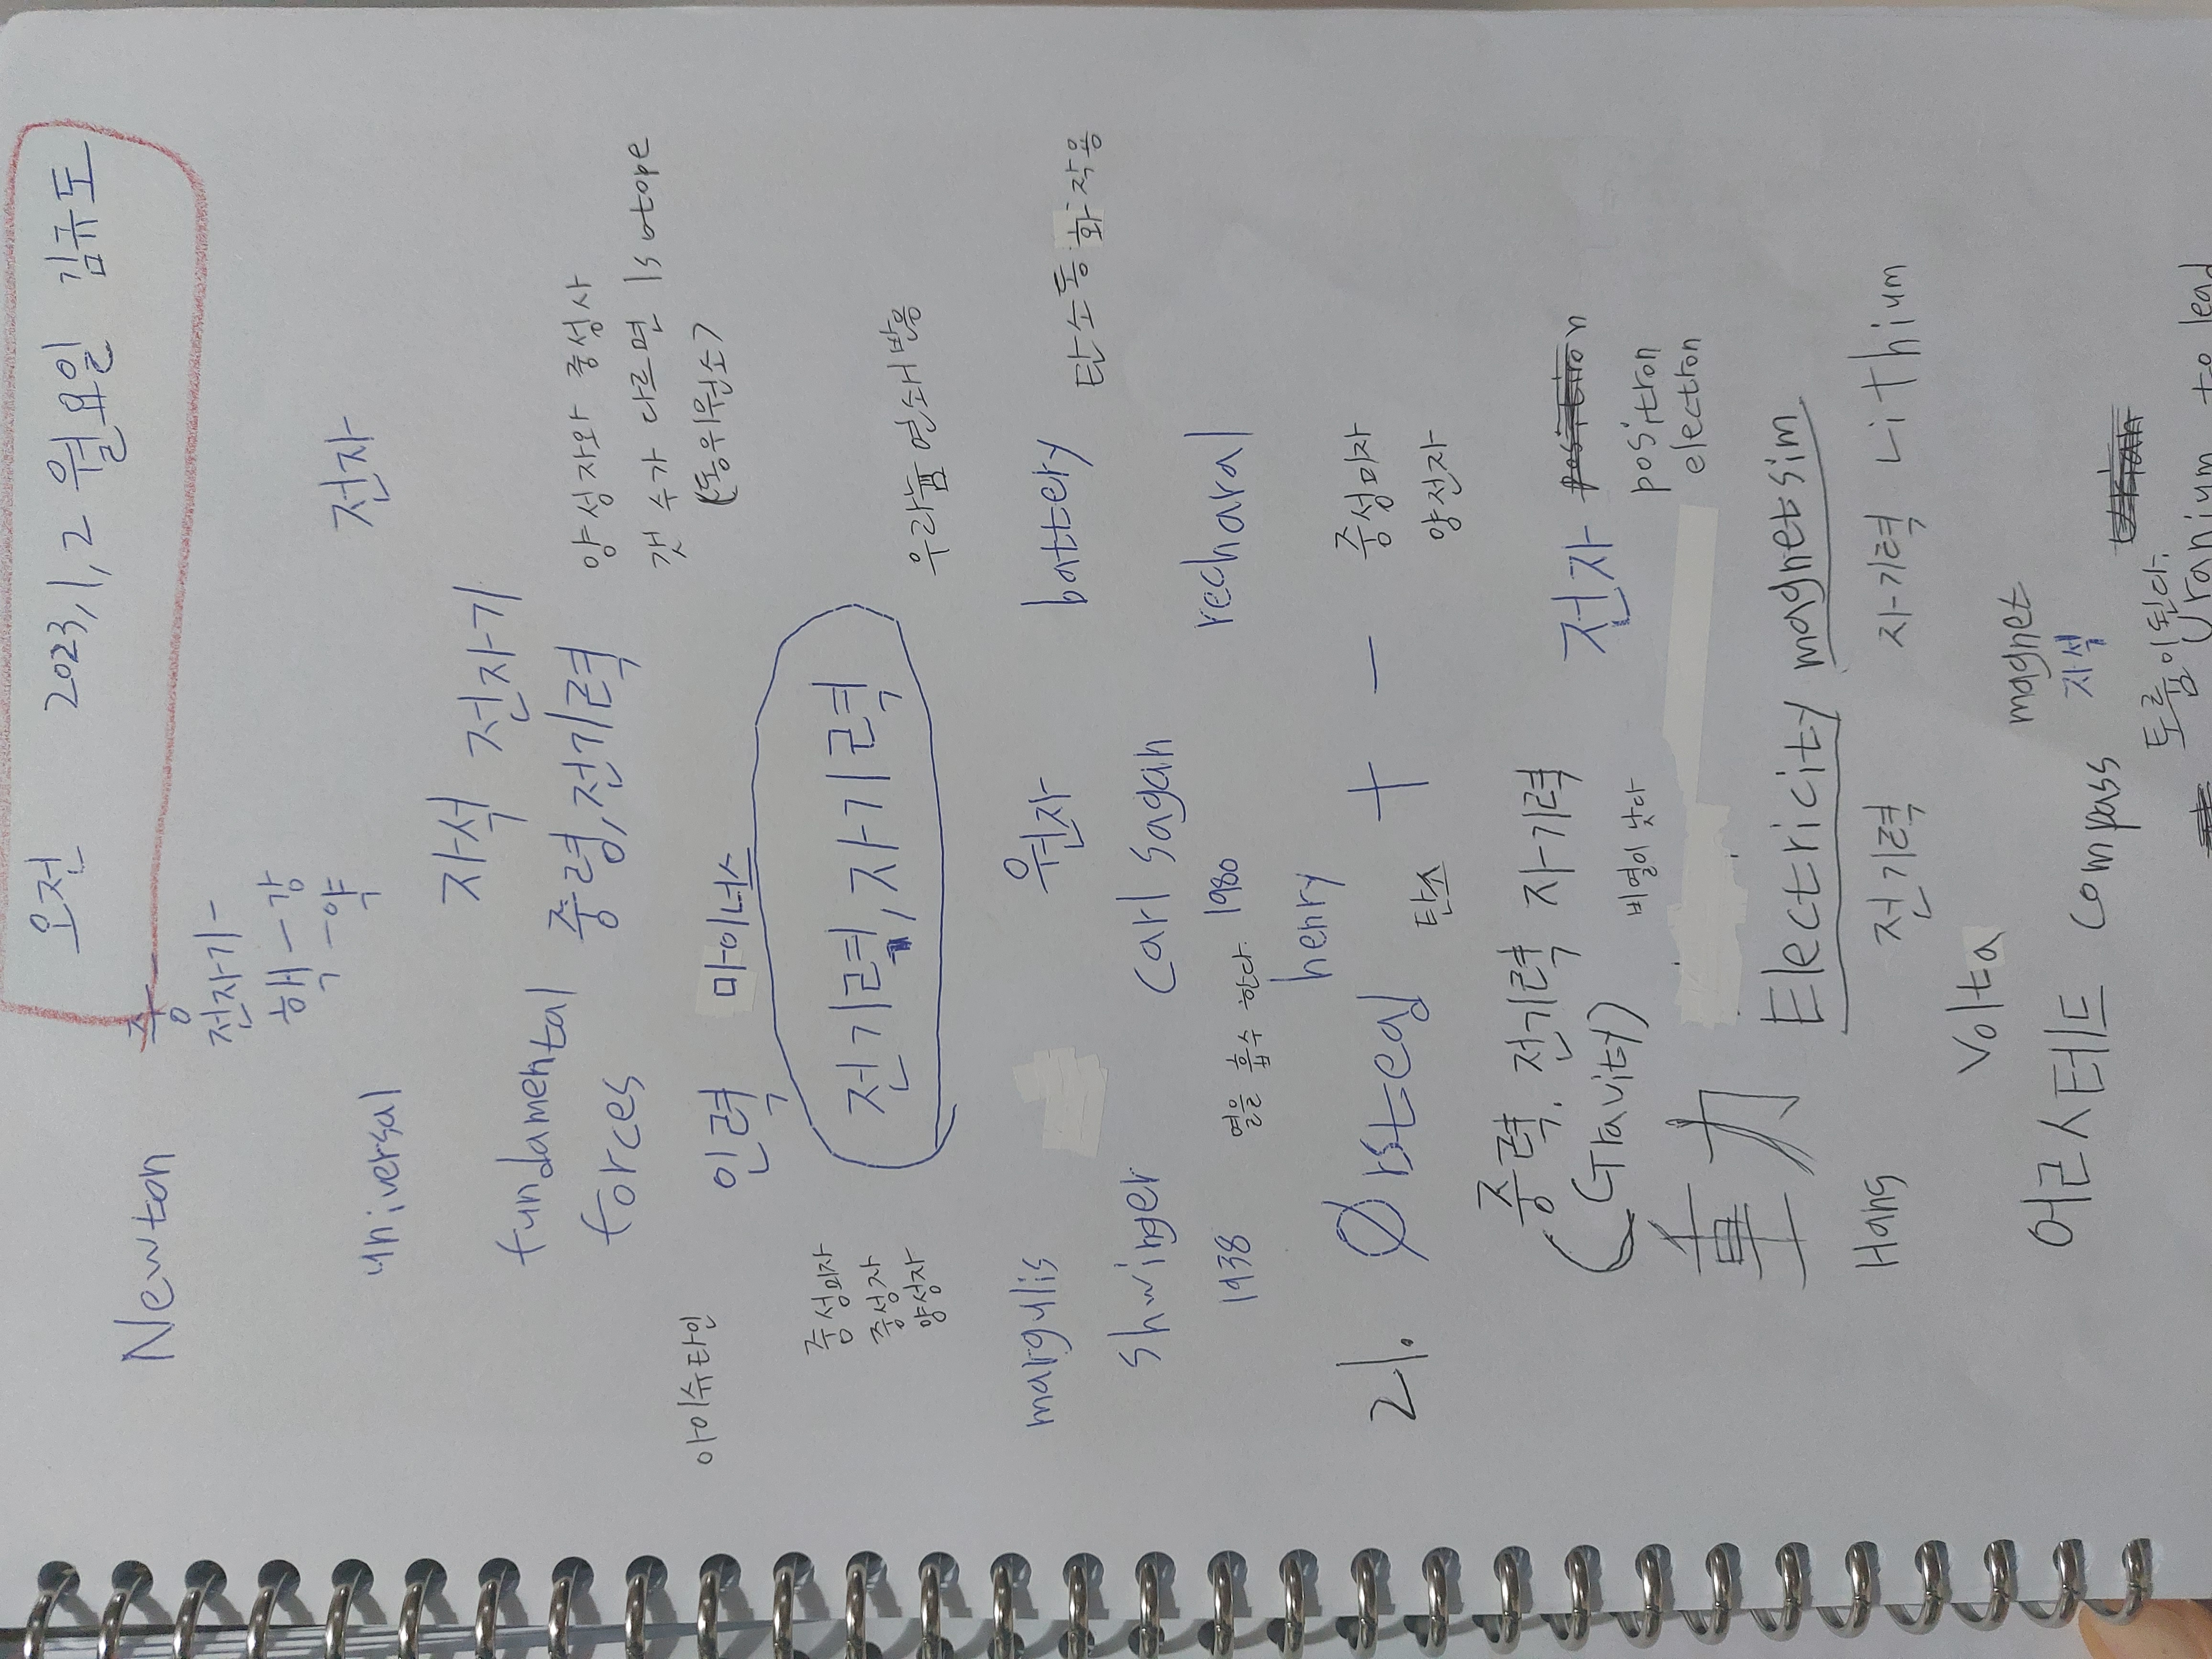 오전 2023,1,2 월요일 김규도
Newton 중
전자기-
핵-강
핵-약
universal 전자
자석 전자기
fundamental 중령,전기력
forces
양성자와 중성사
갯 수가 다르면 Isotope
(동위원소)
아이슈타인 인력 마이너스
전기력,자기력
중성미자
중성자
양성자
우라늄 연쇄반응
margulis 원자 battery 탄소동화작용
shwinger carl sagan recharal
1938 열을 흡수 한다. 1980
henry
21. Ørsted + - 중성미자
탄소 양전자
중력. 전기력 자기력 전자
(Gravity) 비열이 낮다 positron
electron
重力 Electricity magnetsim
Hans 전기력 자기력 Lithium
Volta magnet
어르스테드 compass 자석
토륨이된다.
Uranium to lead